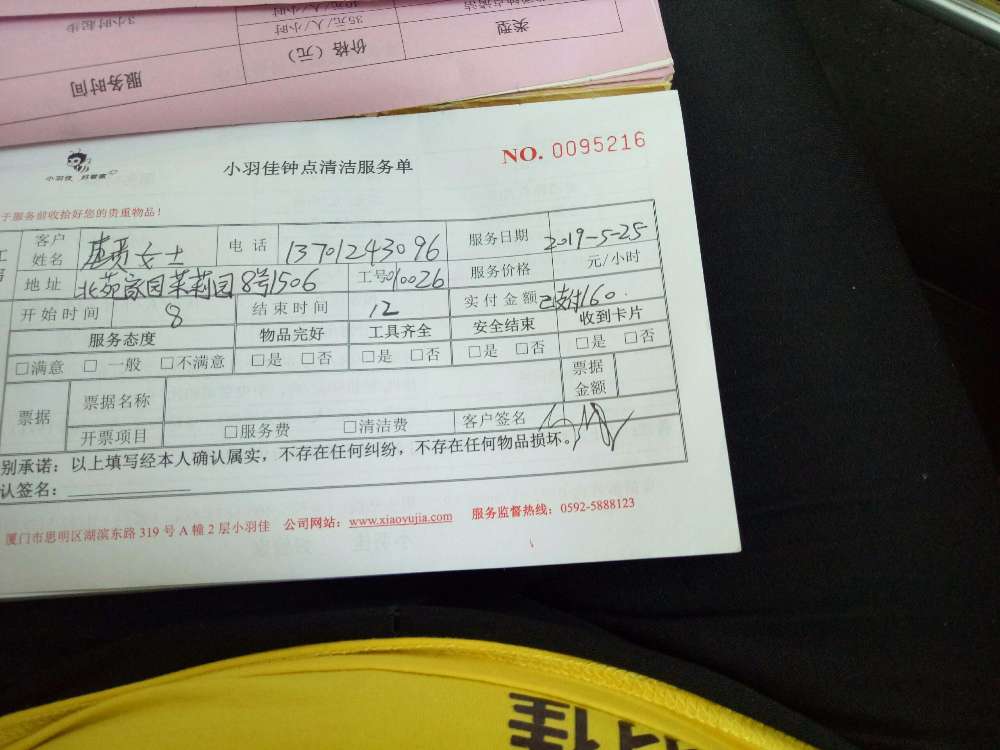 3小时起步
35元/人/小时
类型
价格（元）
服务时间
小羽佳 好管家
小羽佳钟点清洁服务单
NO. 0095216
于服务前收拾好您的贵重物品！
客户姓名 女士 电话 13701243096 服务日期 2019-5-25
地址 北苑家园茉莉园8号1506 工号 010026 服务价格 元/小时
开始时间 8 结束时间 12 实付金额 已支付160
服务态度 物品完好 工具齐全 安全结束 收到卡片
□满意 □一般 □不满意 □是 □否 □是 □否 □是 □否 □是 □否
票据 票据名称 票据金额
开票项目 □服务费 □清洁费 客户签名
别承诺：以上填写经本人确认属实，不存在任何纠纷，不存在任何物品损坏。
认签名：
厦门市思明区湖滨东路319号A幢2层小羽佳 公司网站：www.xiaoyujia.com 服务监督热线：0592-5888123